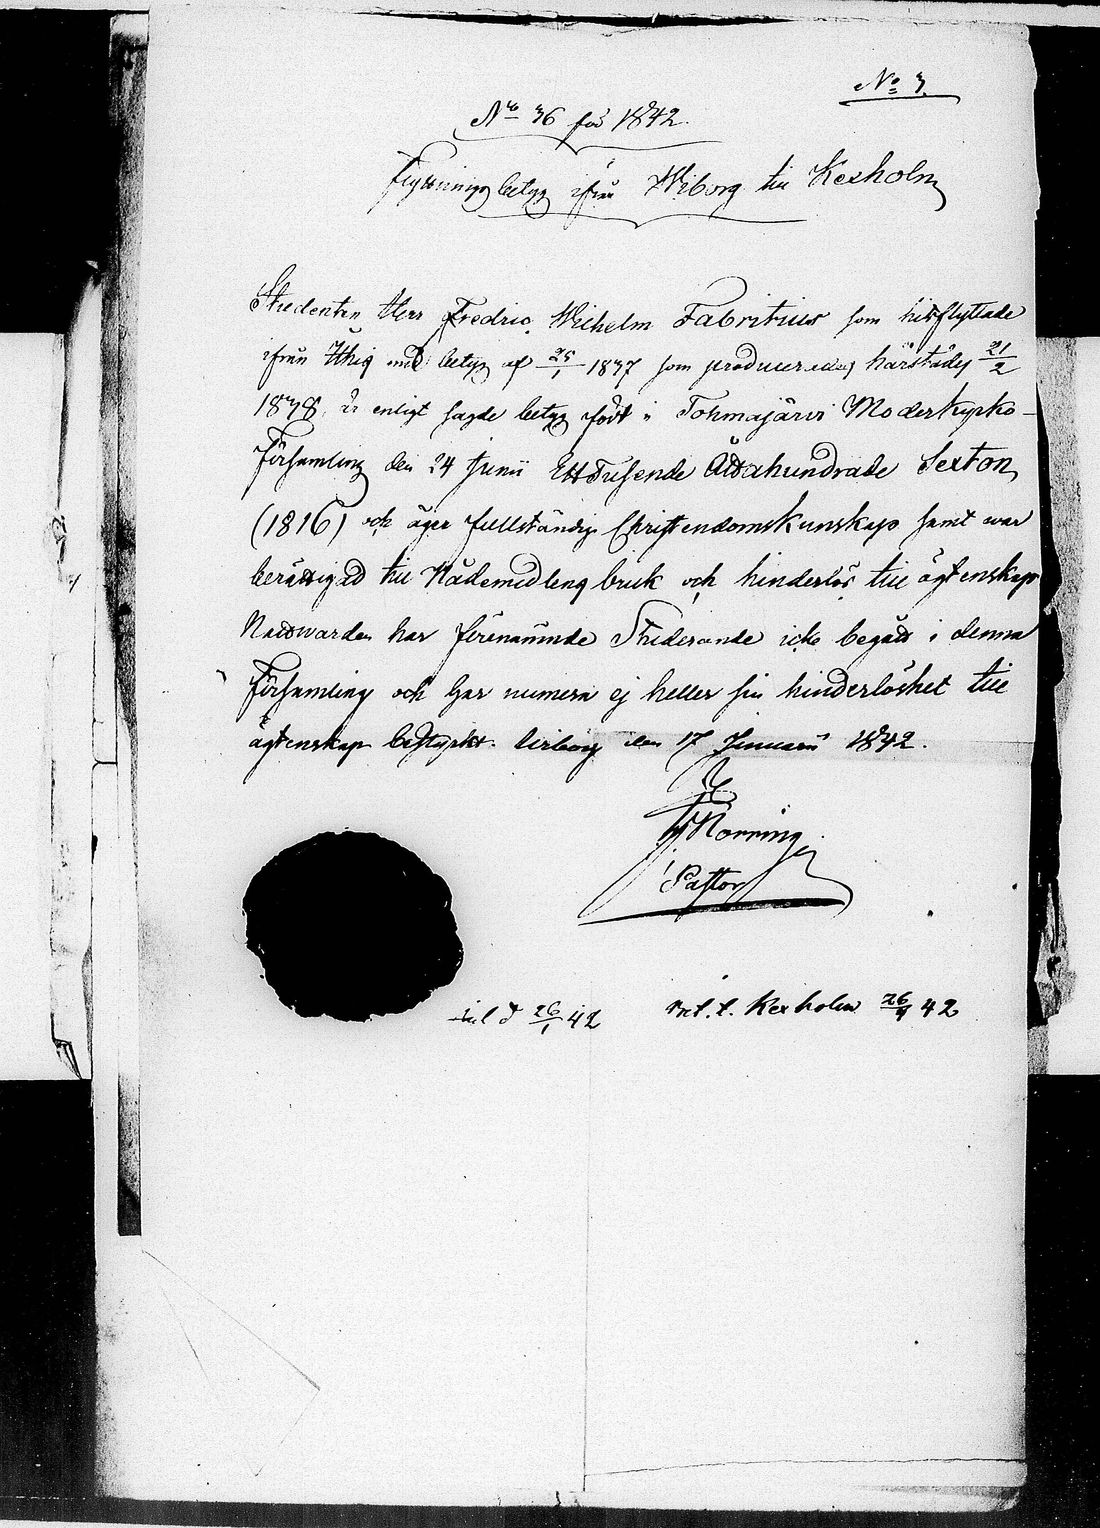 No 3.
No 36 för 1842.
Flyttningsbetyg ifrån Wiborg till Kexholm
Studenten Herr Fredric Wilhelm Fabritius som hitflyttade
ifrån med betyg af 25/1 1837 som producerades härstädes 21/2
1838, är enligt sagde betyg född i Tohmajärvi Moderkyrko-
Församling den 24 Junii Ett Tusende Åttahundrade Sexton
(1816) och äger fullständig Christendomskunskap samt war
berättigad till Nådemedlens bruk och hinderlös till ägtenskap
Nattwarden har förenämnde Studerande icke begått i denna
Församling och har numera ej heller sin hinderlöshet till
ägtenskap bestyrkt. Wiborg den 17 Januarii 1842.
Norring
Pastor
26/1 42
t. Kexholm 26/4 42